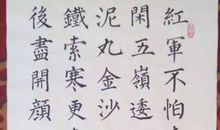 紅軍不怕
閑五嶺逶
泥丸金沙
鐵索寒更
後盡開顔